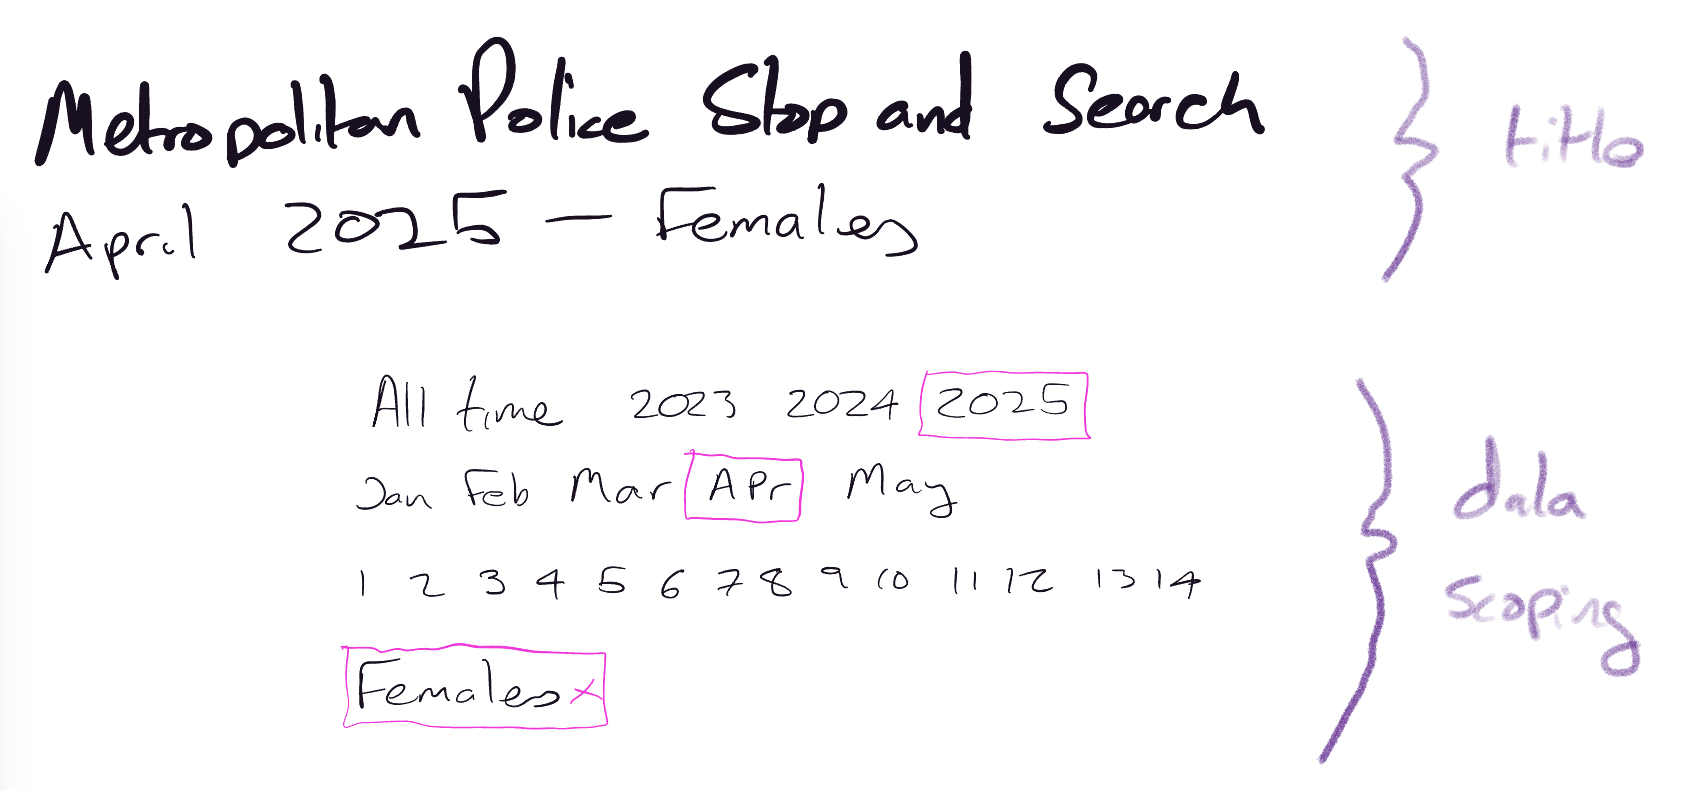 Metropolitan Police Stop and Search
April 2025 — Females
title
All time 2023 2024 2025
Jan Feb Mar Apr May
1 2 3 4 5 6 7 8 9 10 11 12 13 14
Females x
data
scoping